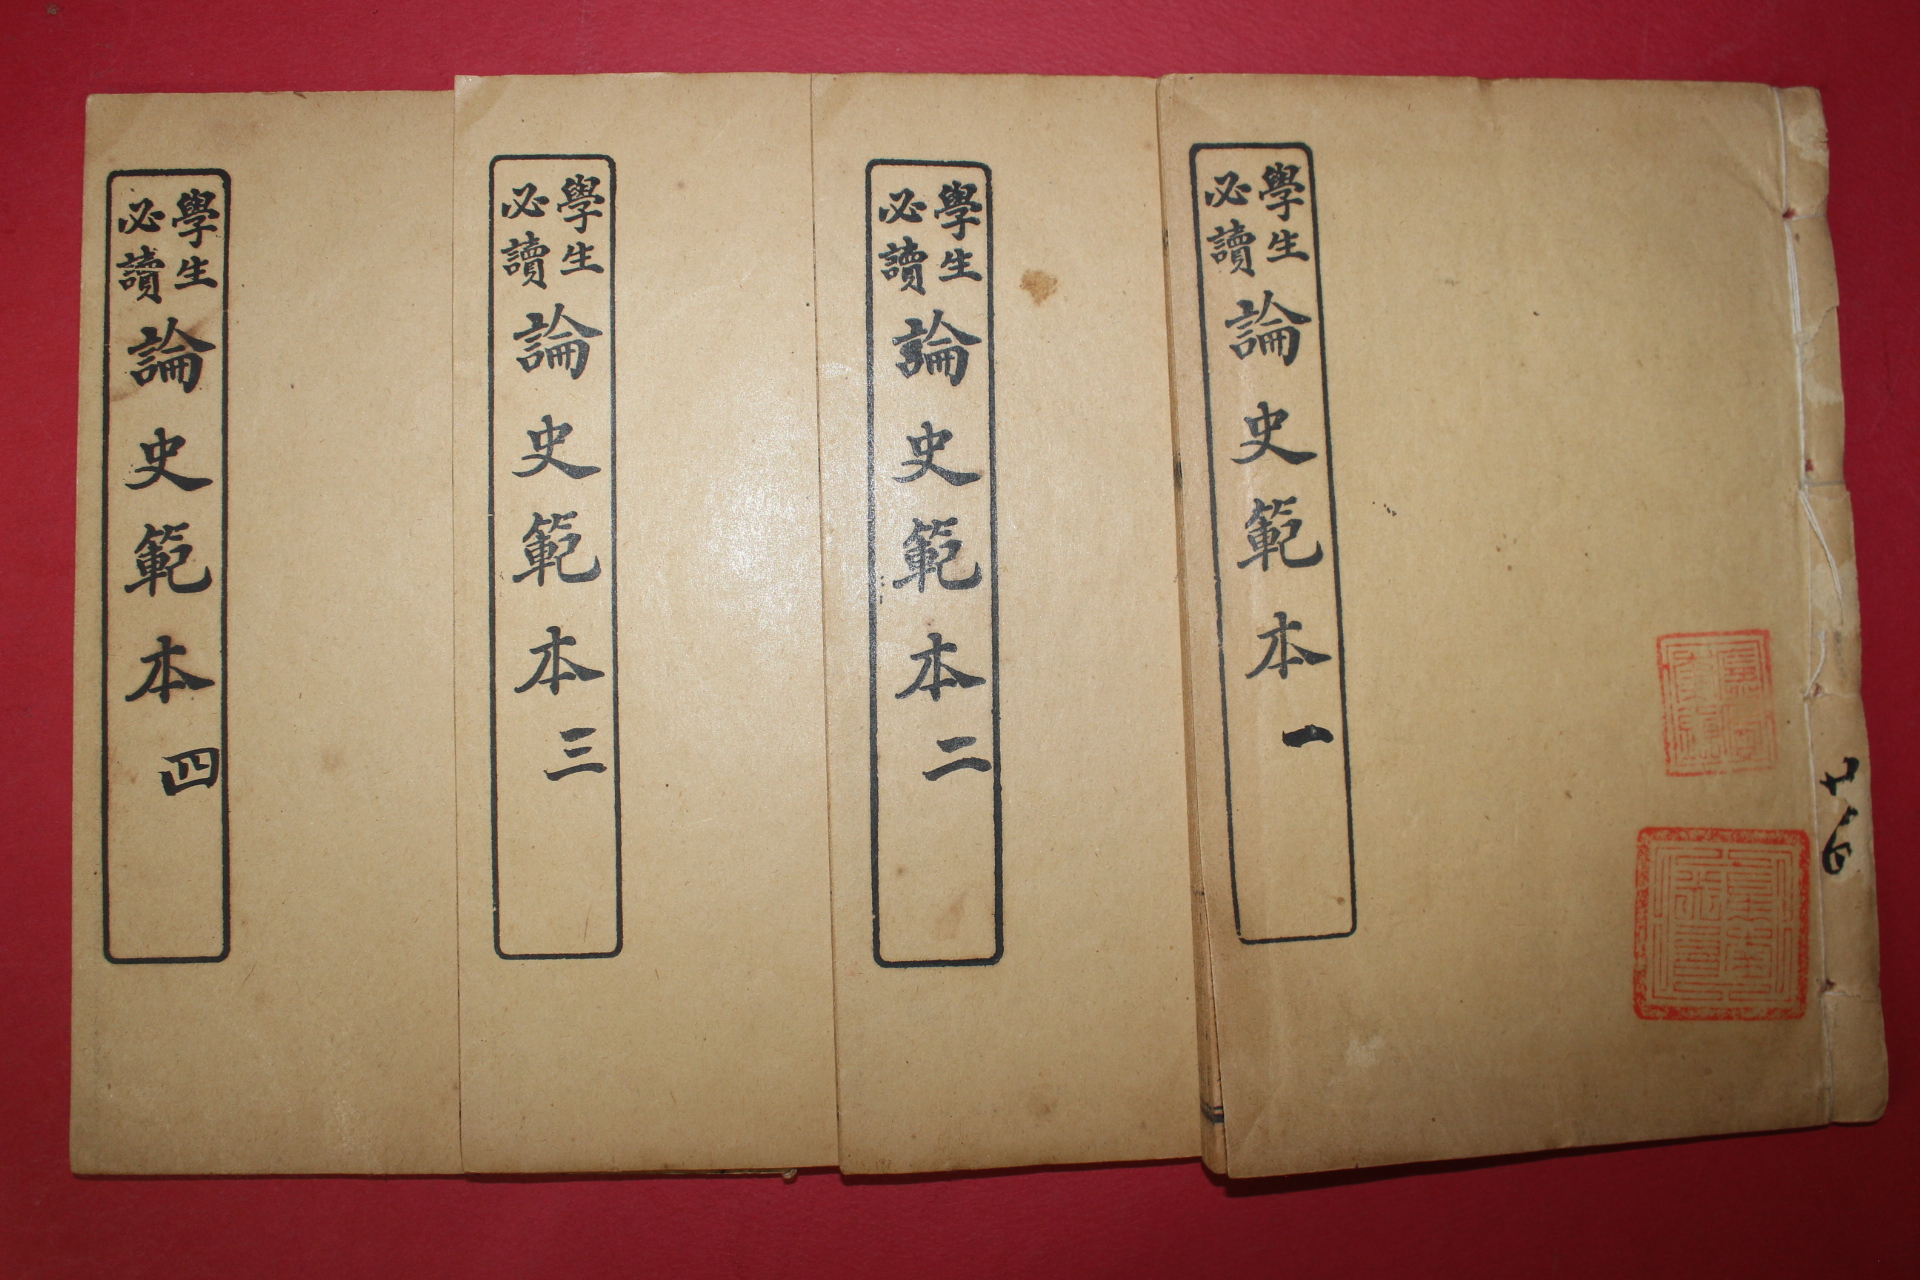 學生
必讀
論史範本 一
學生
必讀
論史範本 二
學生
必讀
論史範本 三
學生
必讀
論史範本 四